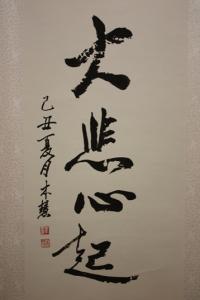 大悲心起
己丑夏月木慧